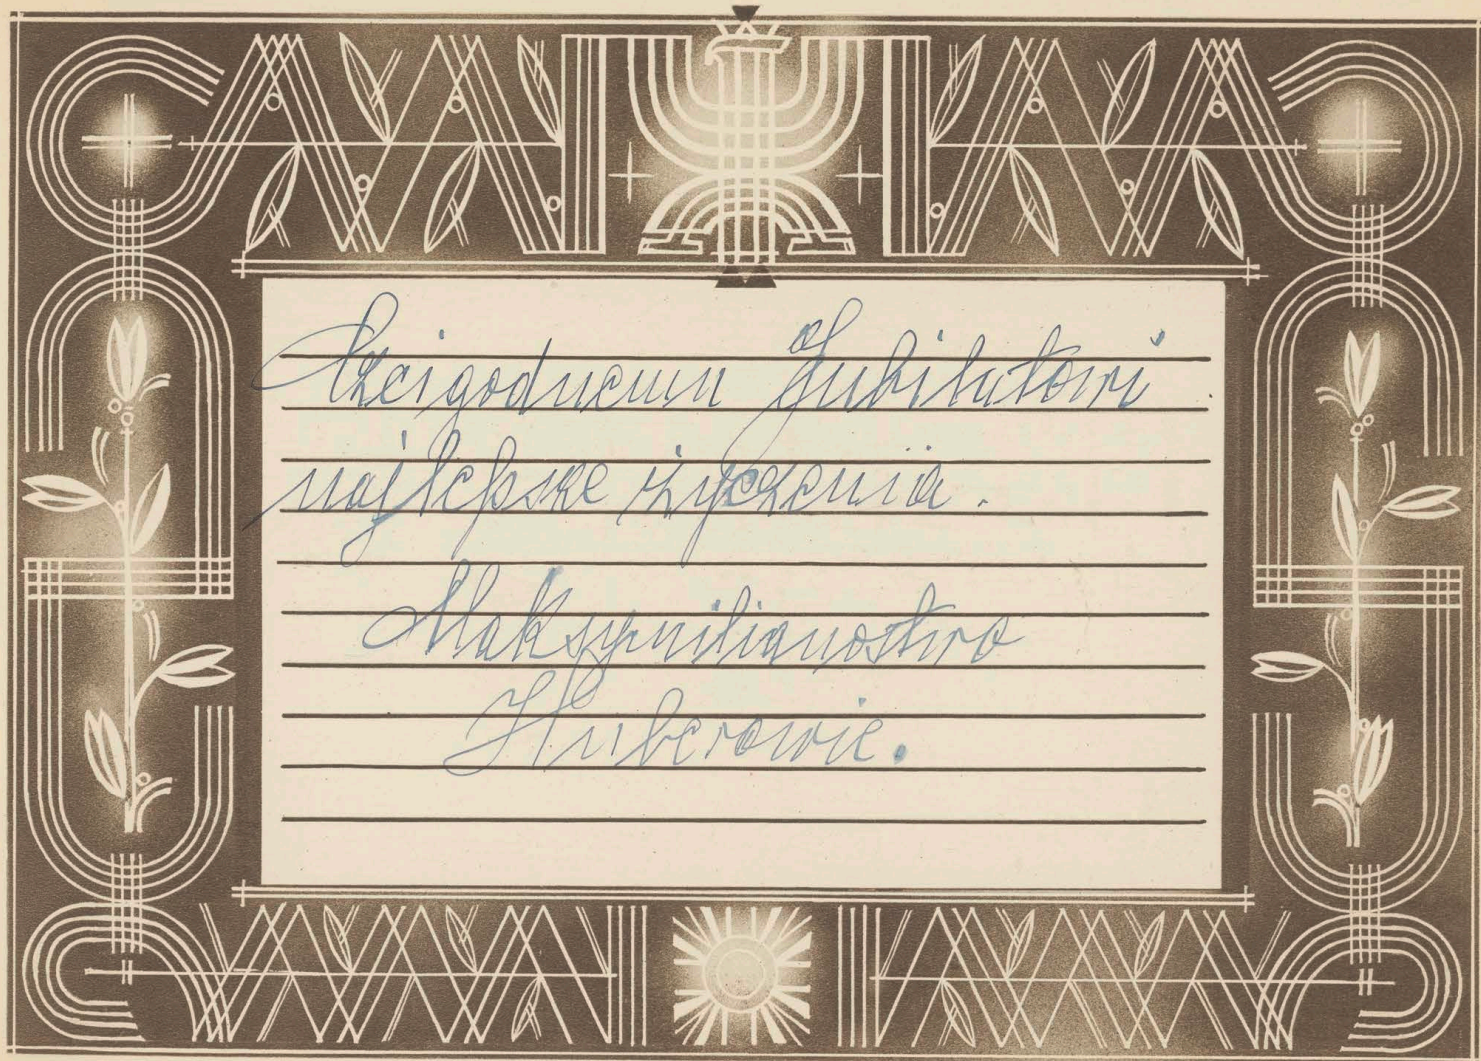 Czcigodnemu Jubilatowi
najlepsze życzenia.
Maksymilianostwo
Huberowie.